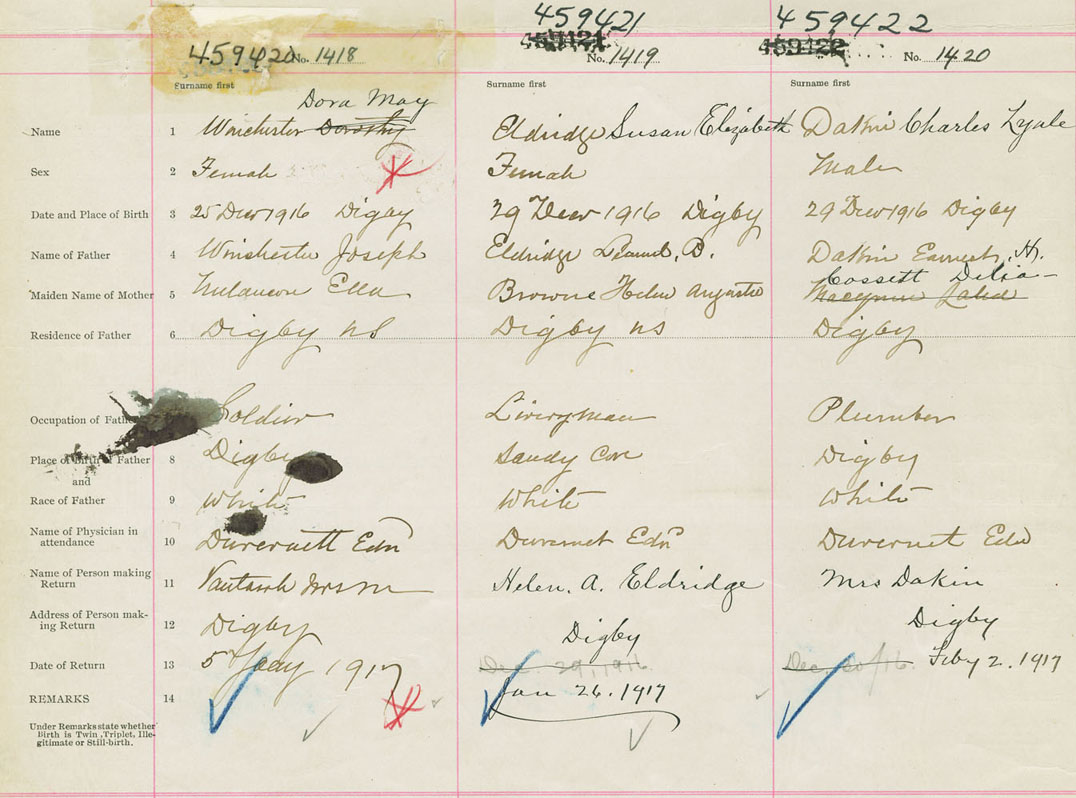 459421 459422
459420 No. 1418 No. 1419 No. 1420
Surname first Surname first Surname first
Dora May
Name 1 Winchester Dorothy Eldridge Susan Elizabeth Dakin Charles Lyale
Sex 2 Female Female Male
Date and Place of Birth 3 25 Decr 1916 Digby 29 Decr 1916 Digby 29 Decr 1916 Digby
Name of Father 4 Winchester Joseph Eldridge B. Dakin Earnest, H.
Cossett Delia
Maiden Name of Mother 5 Ella Browne Helen Augusta
Residence of Father 6 Digby NS Digby NS Digby
Occupation of Father Soldier Liveryman Plumber
Place of Birth of Father 8 Digby Sandy Cove Digby
and
Race of Father 9 White White White
Name of Physician in
attendance 10 Duvernett Edn Duvernet Edn Duvernet Edn
Name of Person making
Return 11 Helen. A. Eldridge Mrs Dakin
Address of Person mak-
ing Return 12 Digby Digby Digby
Date of Return 13 5 Jany 1917 Dec 29, 1916 Feby 2. 1917
REMARKS 14 Jan 26. 1917
Under Remarks state whether
Birth is Twin, Triplet, Ille-
gitimate or Still-birth.